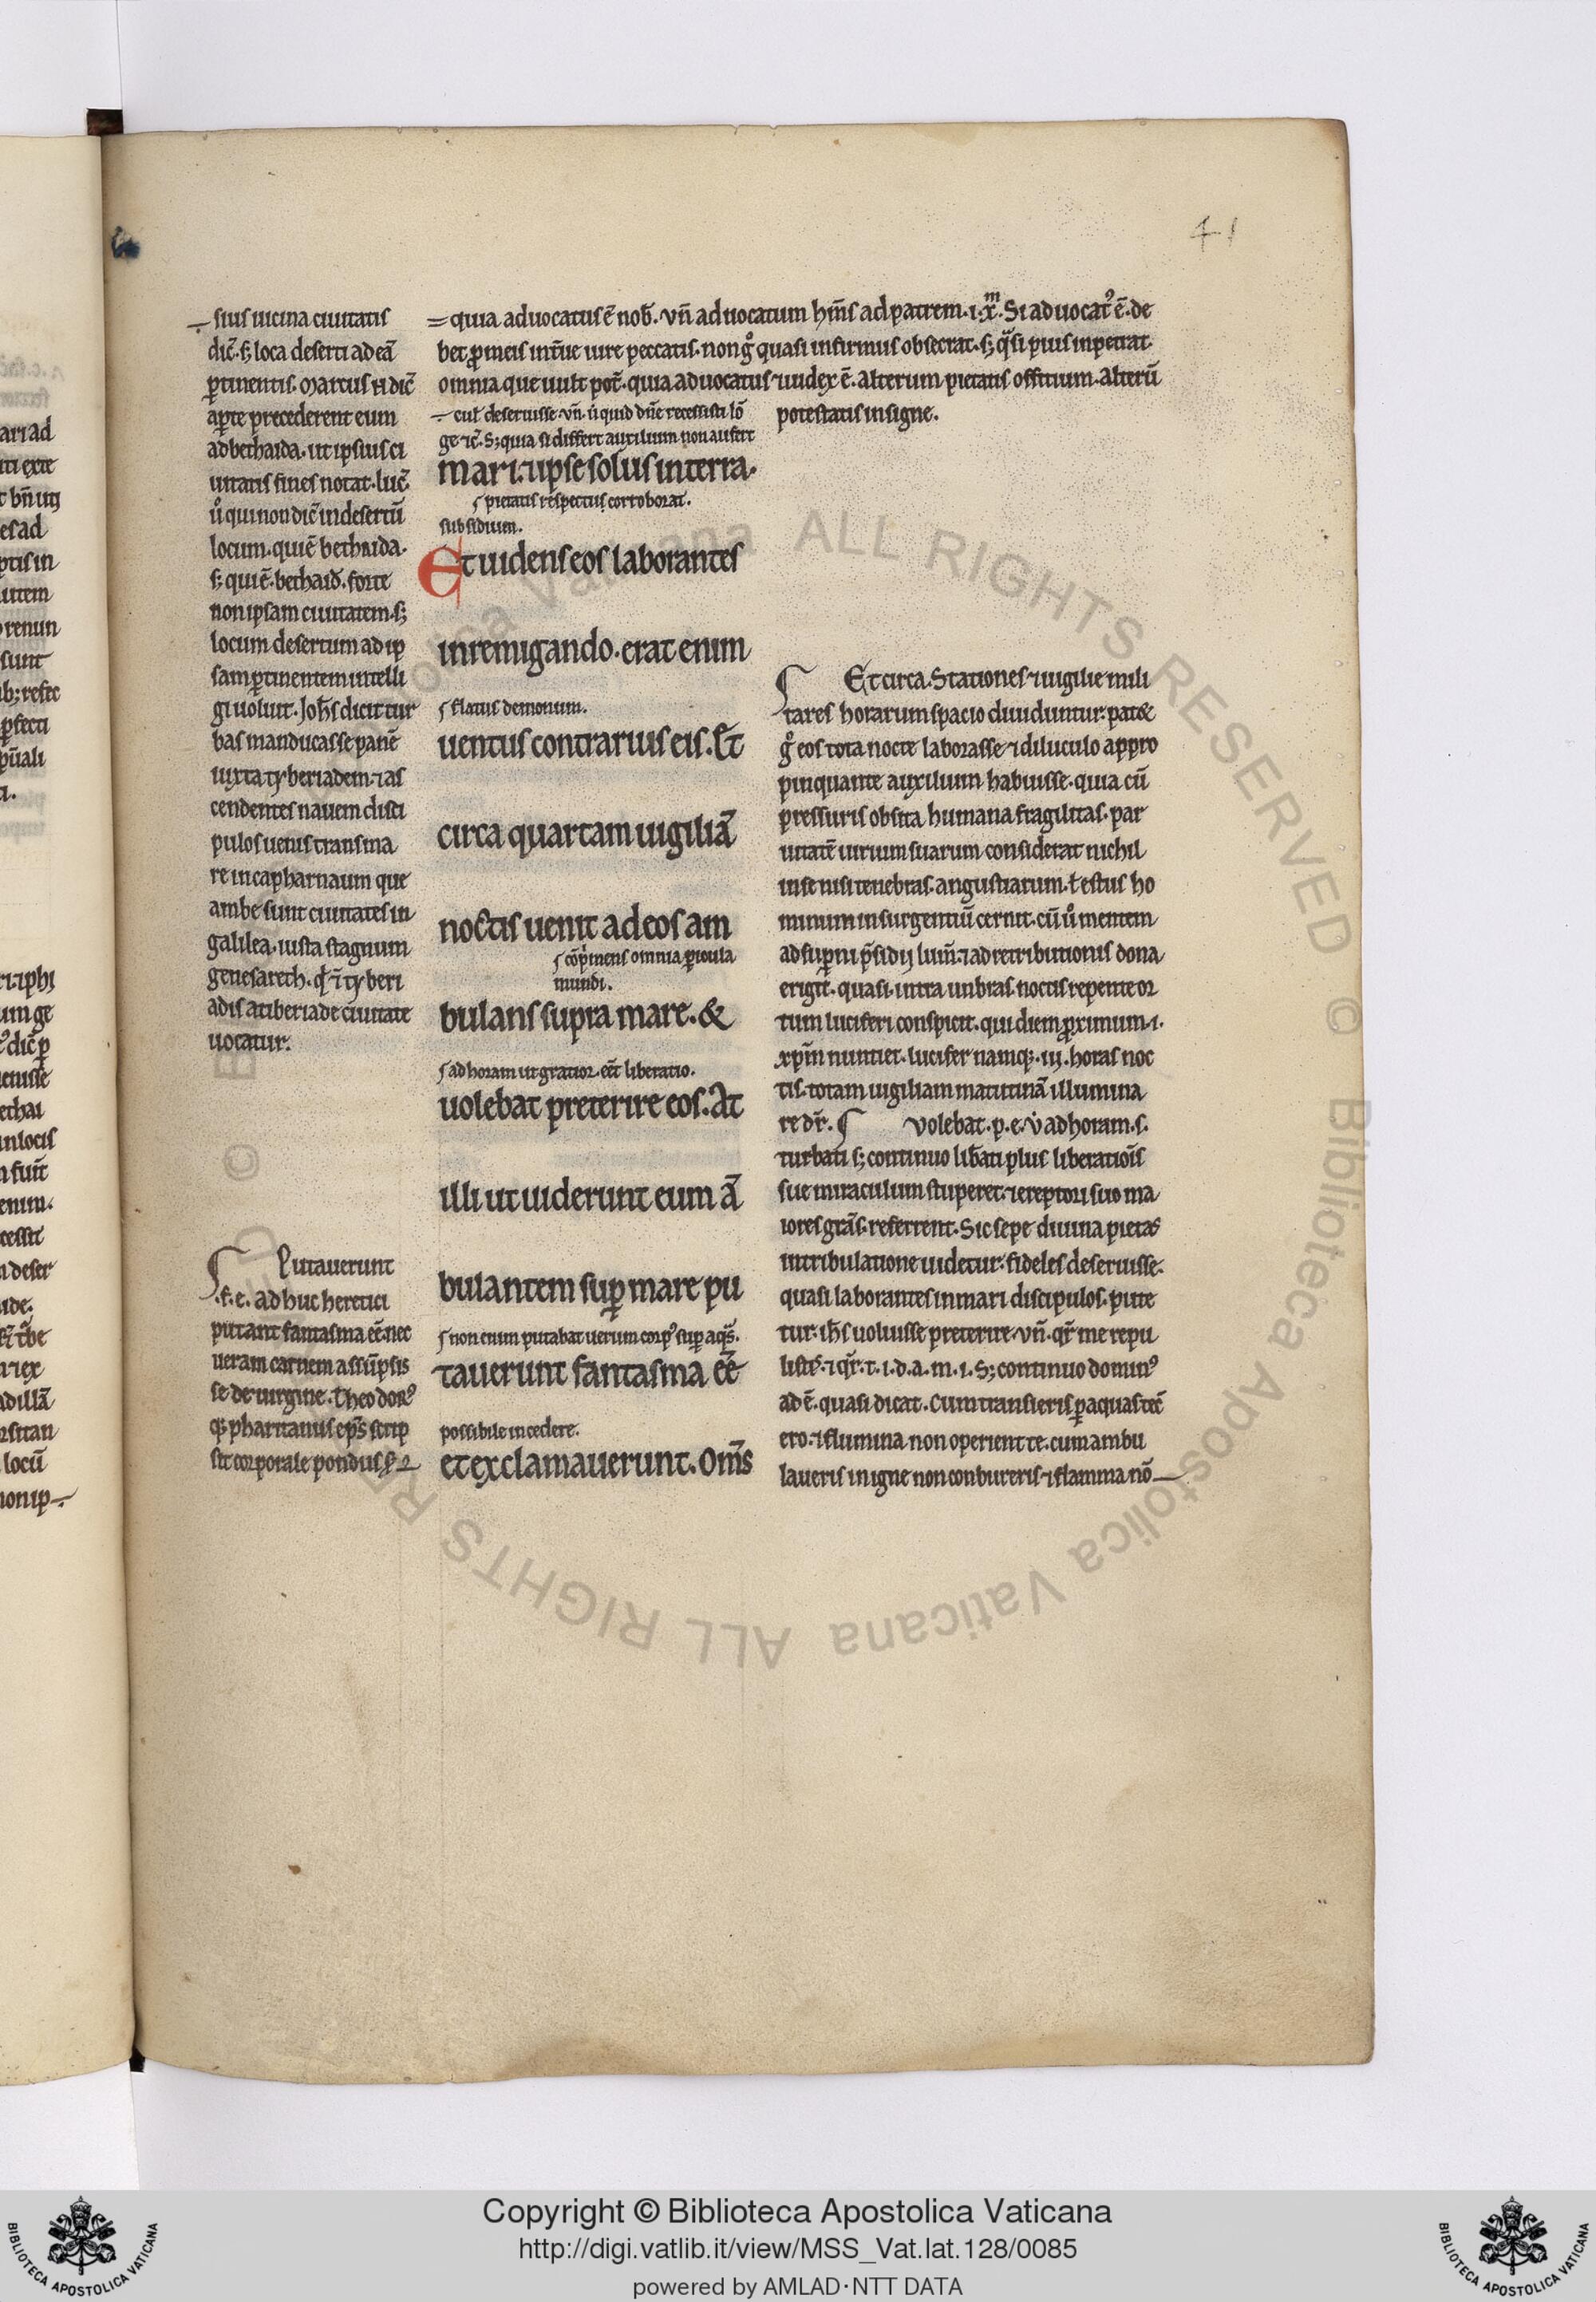 41
sius uicina ciuitatis
dic̄. s; loca deserti ad eā
ꝑtinentis. Marcus ñ dic̄
aꝑte precederent eum
ad bethaida. ut ipsius ci
uitatis fines notat. luc̄
ů qui non dic̄ in desertū
locum. qui ē bethaida.
s; qui ē. bethaid̄. forte
non ipsam ciuitatem. s;
locum desertum ad ip
sam ꝑtinentem intelli
gi uoluit. Joh̄s dicit tur
bas manducasse panē
iuxta tyberiadem. ⁊ as
cendentes nauem disci
pulos uenis trans ma
re in capharnaum que
ambe sunt ciuitates in
galilea. iusta stagnum
genesareth. qď ⁊ tyberi
adis a tiberiade ciuitate
uocatur.
Putauerunt
.f. e. ad huc heretici
putant fantasma eē. nec
ueram carnem assūpsis
se de uirgine. Theodorꝰ
q; pharitanus ep̄s scrip
sit corporale pondus
quia aduocatus ē nob̄. vn̄ aduocatum hm̄s ad patrem. i. x̄m. Si aduocatꝰ ē. de
bet ꝓ meis int̄ue uire peccatis. non gͦ quasi infirmus obsecrat. s; qͣsi pius inpetrat.
omnia que uult pot̄. quia aduocatus ⁊ iudex ē. alterum pietatis offitium. alterū
potestatis insigne.
cul̄ deseruisse. vn̄. ů quid dn̄e recessisti lō
ge ⁊c̄. S; quia si differt auxilium non aufert
mari. ⁊ ipse solus in terra.
pietatis respectus corroborat.
subsidium.
Et uidens eos laborantes
in remigando. erat enim
flatus demonum.
uentus contrarius eis. Et
circa quartam uigiliā
noctis uenit ad eos am
cōp̄mens omnia ꝑicula
mundi.
bulans supra mare. &
ad horam ut gratior. eēt liberatio.
uolebat preterire eos. At
illi ut uiderunt eum ā
bulantem suꝑ mare pu
non enim putabat uerum corpꝰ suꝑ aqͣs.
tauerunt fantasma eē
possibile incedere.
et exclamauerunt. Om̄s
Et circa. Stationes ⁊ uigilie mili
tares horarum spacio diuiduntur. pat&
gͦ eos tota nocte laborasse. ⁊ diluculo appro
pinquante auxilium habuisse. quia cū
pressuris obsita humana fragilitas. par
uitatē uirium suarum considerat nichil
in se nisi tenebras. angustiarum. ł estus ho
minum insurgentiū cernit. cū ů mentem
ad suꝑni p̄sidij lum̄. ⁊ ad retributionis dona
erigit̄. quasi. intra unbras noctis repente or
tum luciferi conspicit. qui diem ꝓximum. i.
xp̄m nuntiet. lucifer namq;. iij. horas noc
tis. totam uigiliam matutinā illumina
re dr̄. Volebat. p. e. v̇ ad horam. s.
turbati s; continuo lib̄ati plus liberatiōis
sue miraculum stuperet. ⁊ ereptori suo ma
iores grās. referrent. Sic sepe diuina pietas
in tribulatione uidetur. fideles deseruisse.
quasi laborantes in mari discipulos. pute
tur. ih̄s uoluisse preterire. vn̄. qr̄ me repu
listi. ⁊ qr̄. t. i. d. a. m. i. S; continuo dominꝰ
ad ē. quasi dicat. Cum transieris ꝑ aquas tec̄
ero. ⁊ flumina non operient te. cum ambu
laueris in igne non conbureris ⁊ flamma nō
Copyright © Biblioteca Apostolica Vaticana
http://digi.vatlib.it/view/MSS_Vat.lat.128/0085
powered by AMLAD·NTT DATA